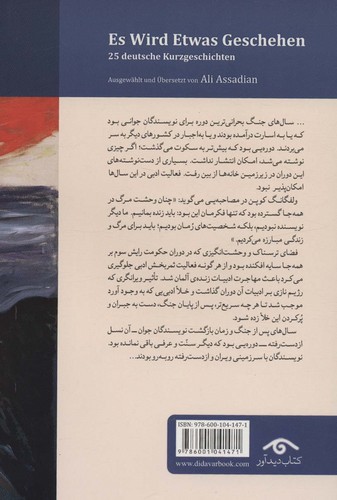 Es Wird Etwas Geschehen
25 deutsche Kurzgeschichten
Ausgewählt und Übersetzt von Ali Assadian
... سال‌های جنگ بحرانی‌ترین دوره برای نویسندگان جوانی بود
که یا به اسارت درآمده بودند و یا به‌اجبار در کشورهای دیگر به سر
می‌بردند. دوره‌یی بود که بیش‌تر به سکوت می‌گذشت؛ اگر چیزی
نوشته می‌شد، امکان انتشار نداشت. بسیاری از دست‌نوشته‌های
این دوران در زیرزمین خانه‌ها از بین رفت. فعالیت ادبی در این سال‌ها
امکان‌پذیر نبود.
ولفگانگ کوپن در مصاحبه‌یی می‌گوید: «چنان وحشت مرگ در
همه‌جا گسترده بود که تنها فکرمان این بود: باید زنده بمانیم. ما دیگر
نویسنده نبودیم، بلکه شخصیت‌های رُمان بودیم؛ باید برای مرگ و
زندگی مبارزه می‌کردیم.»
فضای ترسناک و وحشت‌انگیزی که در دوران حکومت رایش سوم بر
همه‌جا سایه افکنده بود و از هرگونه فعالیت ثمربخش ادبی جلوگیری
می‌کرد باعث مهاجرت ادبیات زنده‌ی آلمان شد. تأثیر ویرانگری که
رژیم نازی بر ادبیات آن دوران گذاشت و خلأ ادبی‌یی که به وجود آورد
موجب شد تا هر چه سریع‌تر، پس از پایان جنگ، دست به جبران و
پُرکردن این خلأ زده شود.
سال‌های پس از جنگ و زمان بازگشت نویسندگان جوان ـ آن نسل
ازدست‌رفته ـ دوره‌یی بود که دیگر سنّت و عرفی باقی نمانده بود.
نویسندگان با سرزمینی ویران و ازدست‌رفته روبه‌رو بودند...
ISBN: 978-600-104-147-1
9 786001 041471
www.didavarbook.com
کتاب دیدآور